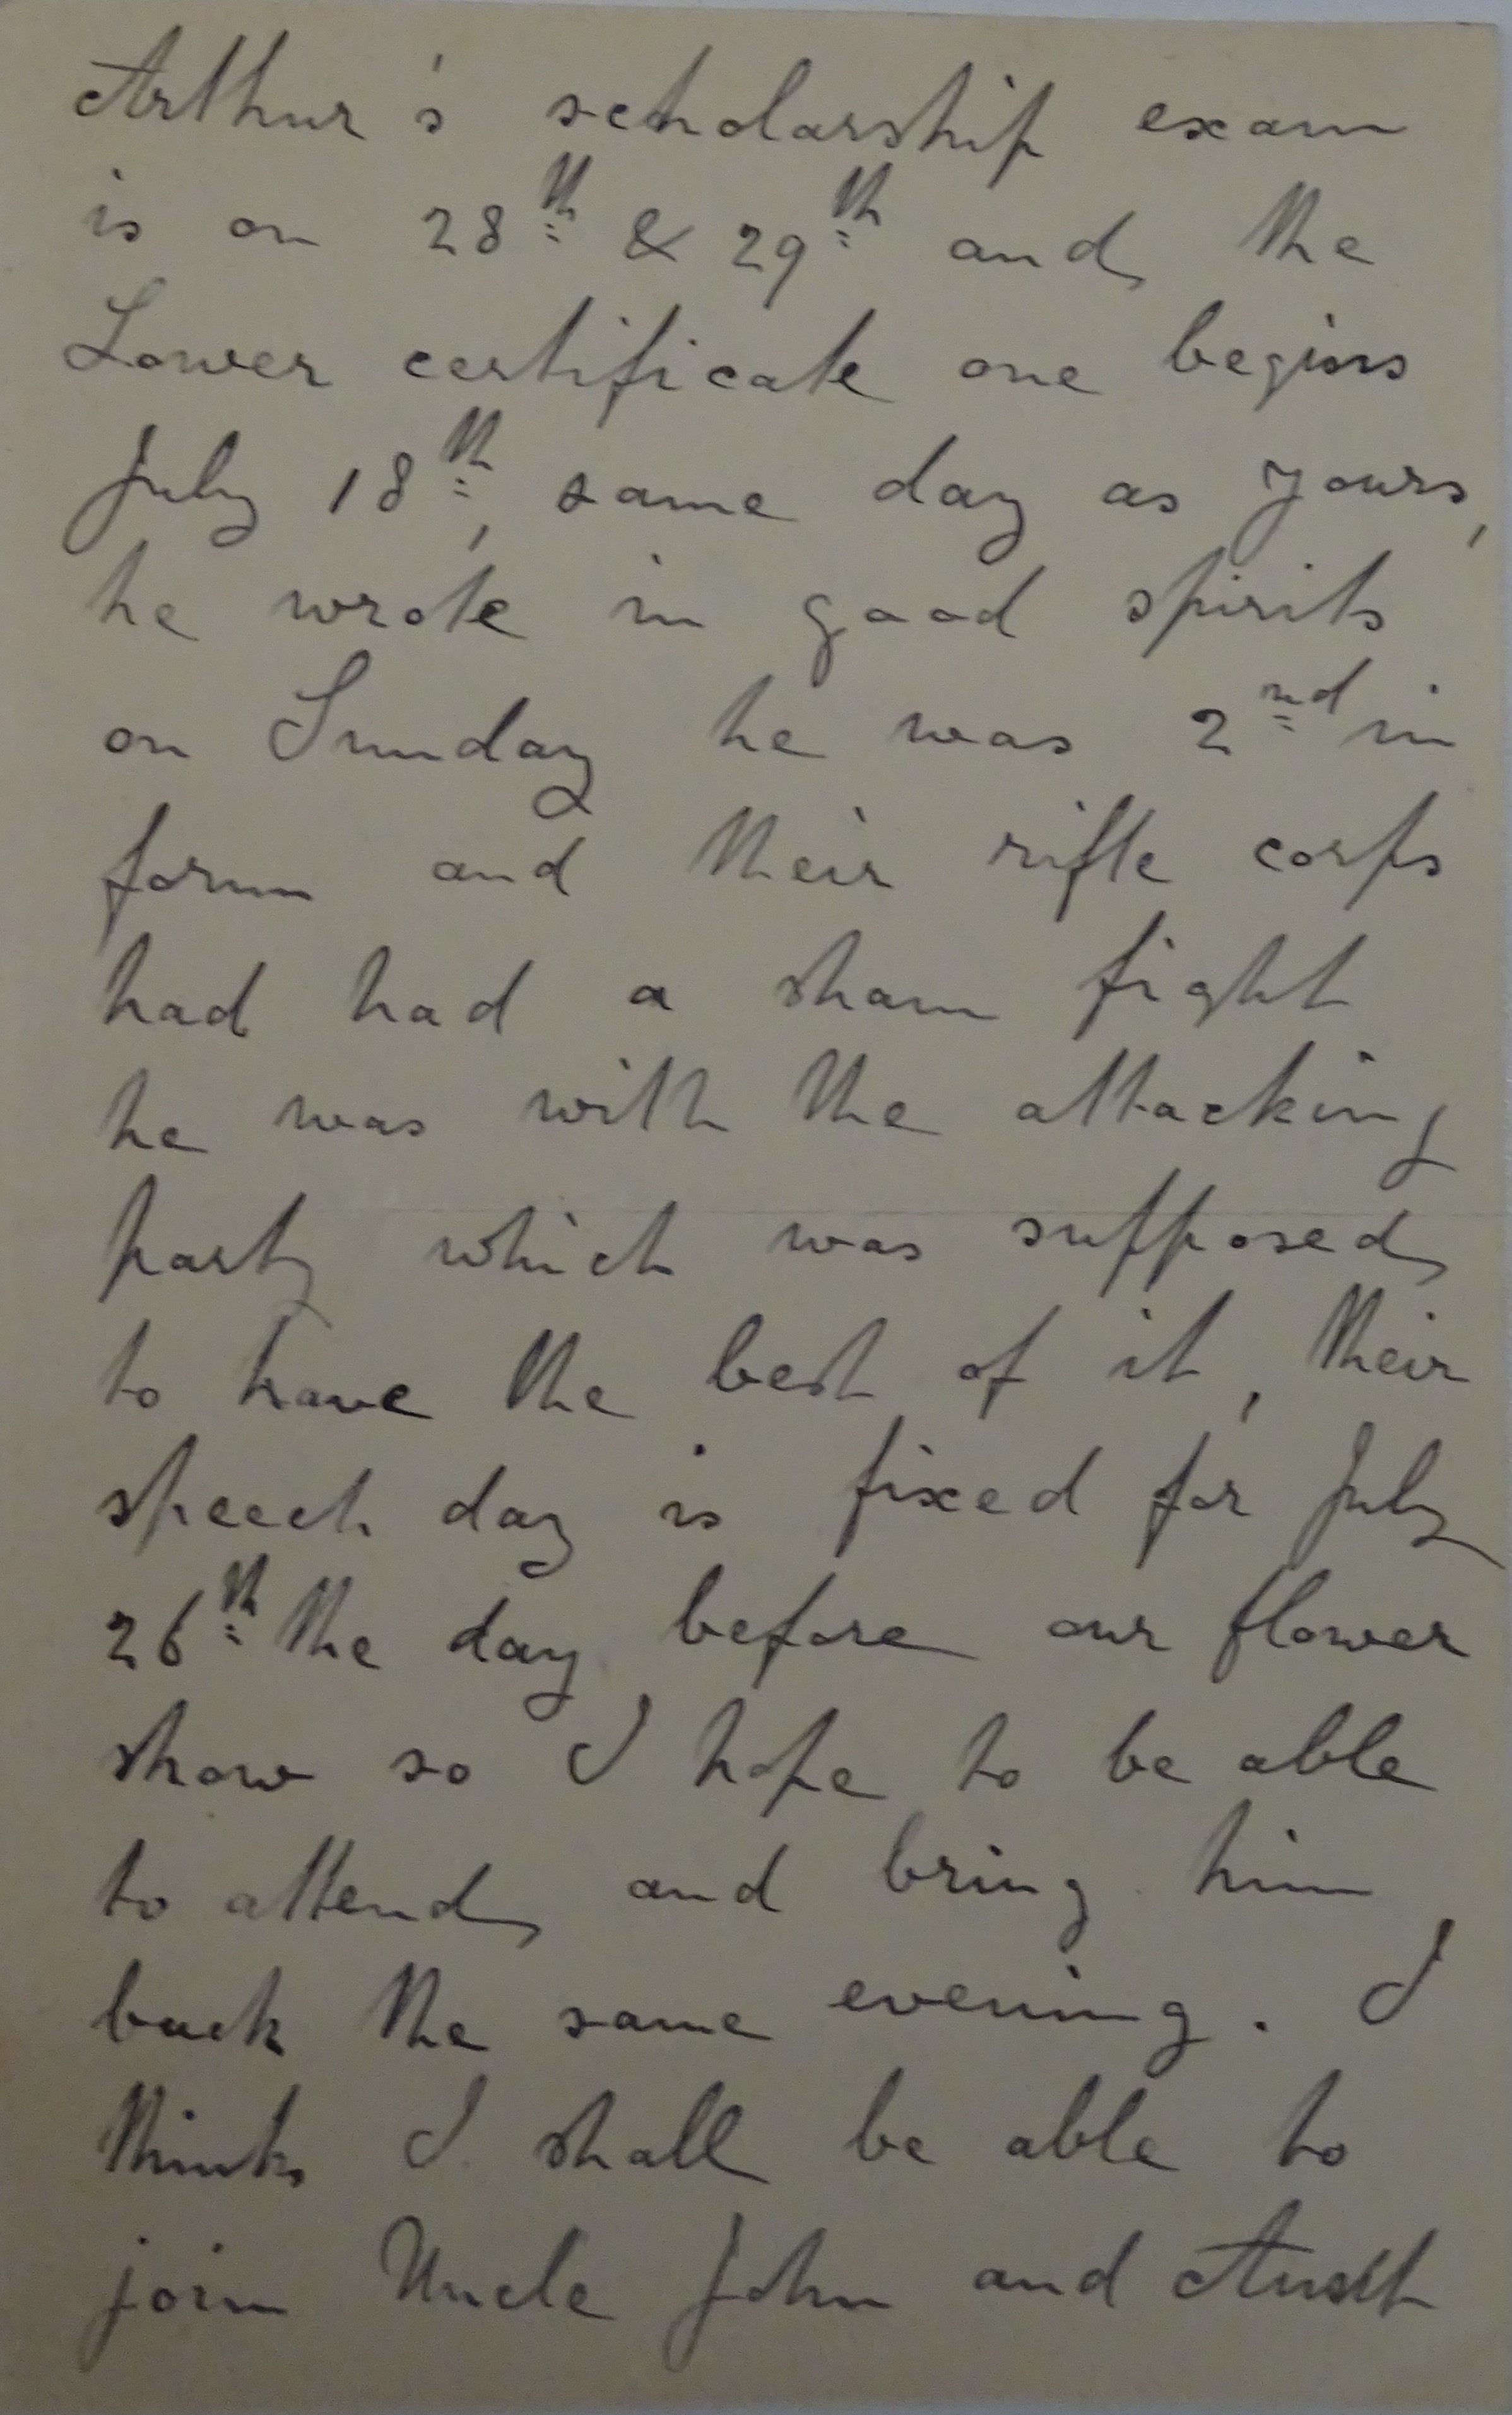 Arthur's scholarship exam
is on 28th & 29th and the
Lower certificate one begins
July 18th, same day as yours,
he wrote in good spirits
on Sunday he was 2nd in
form and their rifle corps
had had a sham fight
he was with the attacking
party which was supposed
to have the best of it, their
speech day is fixed for July
26th the day before our flower
show so I hope to be able
to attend and bring him
back the same evening. I
think I shall be able to
join Uncle John and Aunt